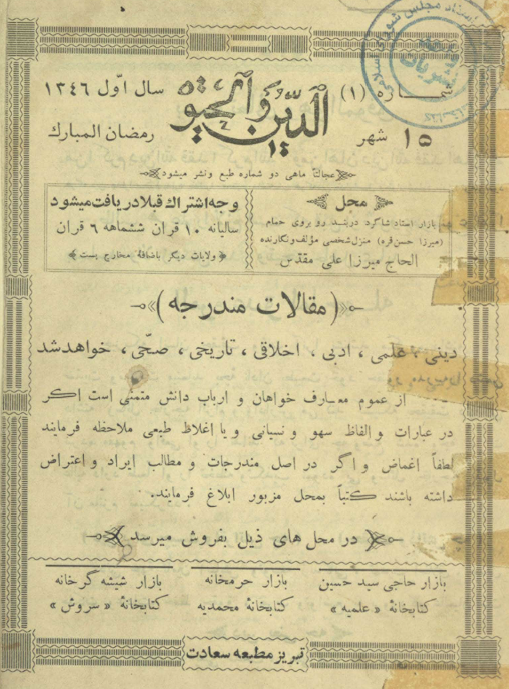 شماره (۱)
الدّین وَالحیوٰة
سال اوّل ۱۳۴۶
۱۵ شهر
رمضان المبارك
عجالتاً ماهی دو شماره طبع ونشر میشود
محل
بازار استاد شاگرد دربند رو بروی حمام
(میرزا حسن قره) منزل شخصی مؤلف ونگارنده
الحاج میرزا علی مقدّس
وجه اشتراك قبلا دریافت میشود
سالیانه ۱۰ قران ششماهه ۶ قران
ولایات دیگر باضافهٔ مخارج پست
(مقالات مندرجه)
دینی ، علمی ، ادبی ، اخلاقی ، تاریخی ، صحّی ، خواهد شد
از عموم معارف خواهان و ارباب دانش متمنّی است اگر
در عبارات و الفاظ سهو و نسیانی و یا اغلاط طبعی ملاحظه فرمایند
لطفاً اغماض و اگر در اصل مندرجات و مطالب ایراد و اعتراض
داشته باشند کتباً بمحل مزبور ابلاغ فرمایند.
در محل های ذیل بفروش میرسد
بازار حاجی سید حسین
کتابخانهٔ « علمیه »
بازار حرمخانه
کتابخانهٔ محمدیه
بازار شیشه گرخانه
کتابخانهٔ « سروش »
تبریز مطبعه سعادت